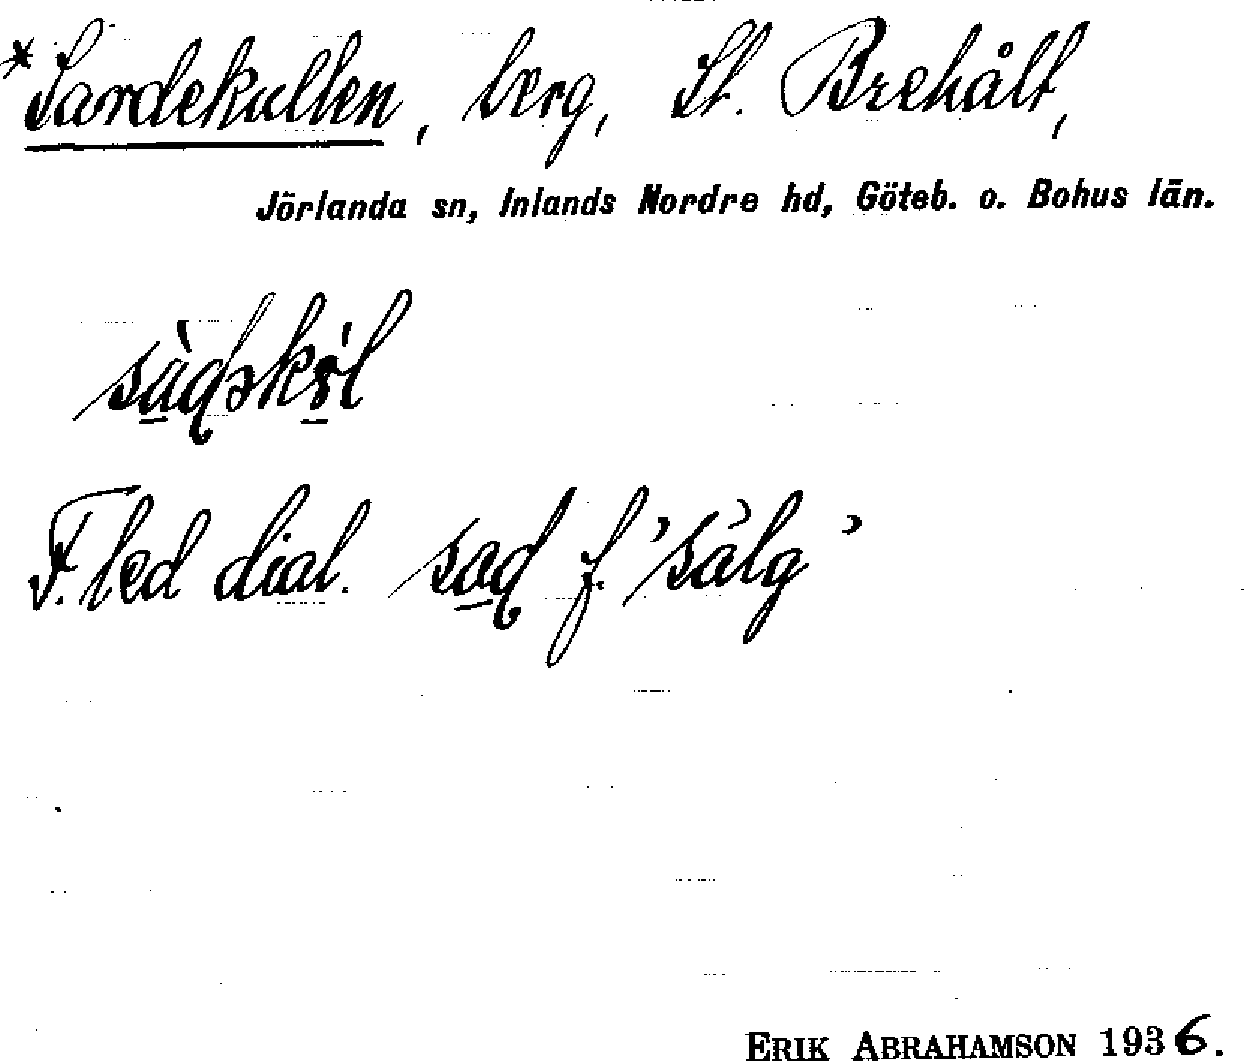 *Sardekullen, berg, St. Brehålt,
Jörlanda sn, Inlands Nordre hd, Göteb. o. Bohus län.
F. led dial. saɖ f. 'sälg'
ERIK ABRAHAMSON 1936.